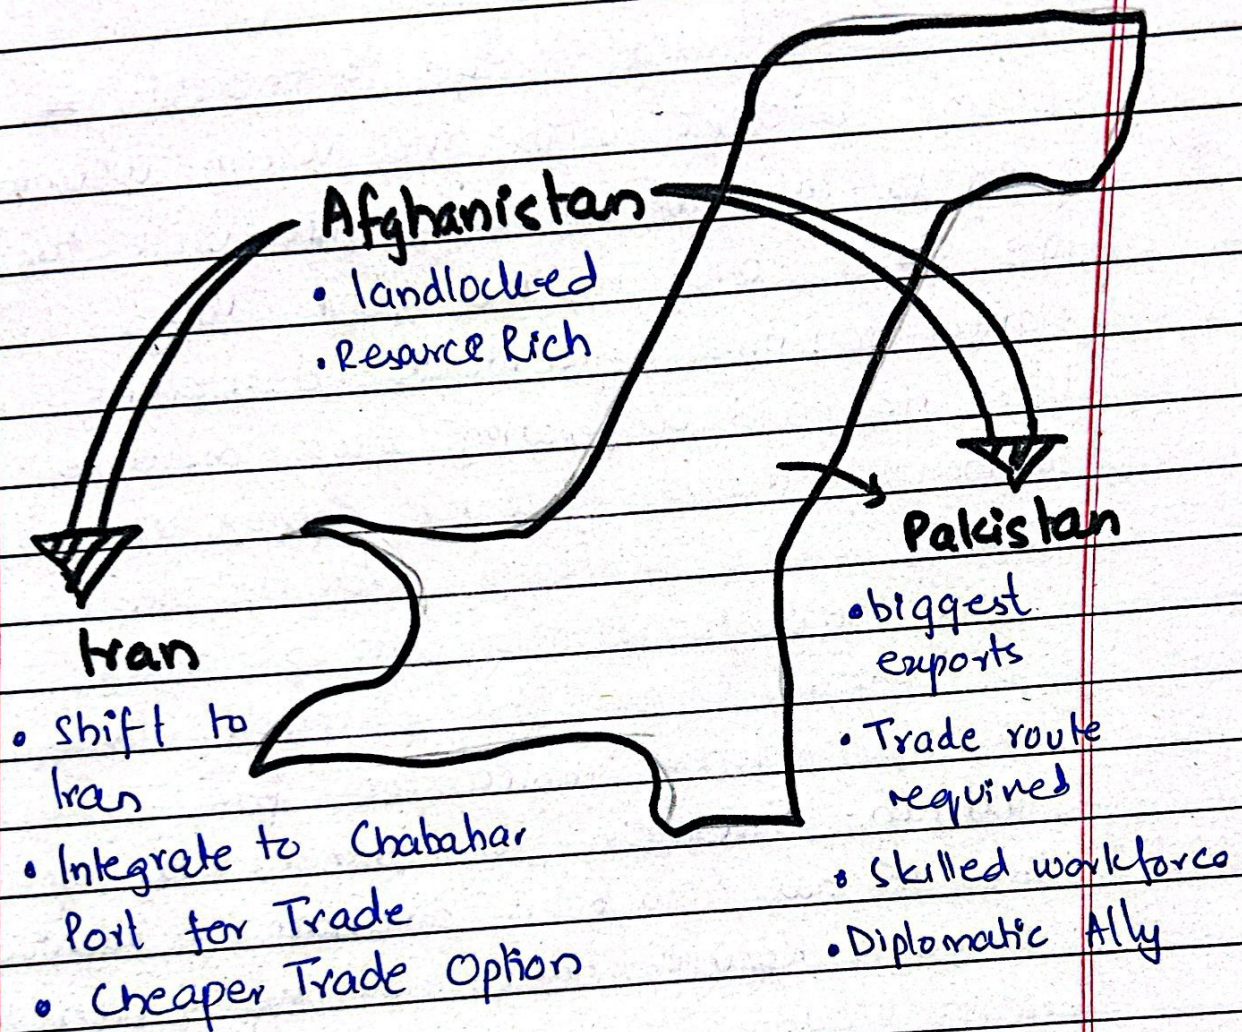 Afghanistan
• landlocked
• Resource Rich
Iran
• Shift to
Iran
• Integrate to Chabahar
Port for Trade
• Cheaper Trade Option
Pakistan
• biggest
exports
• Trade route
required
• Skilled workforce
• Diplomatic Ally